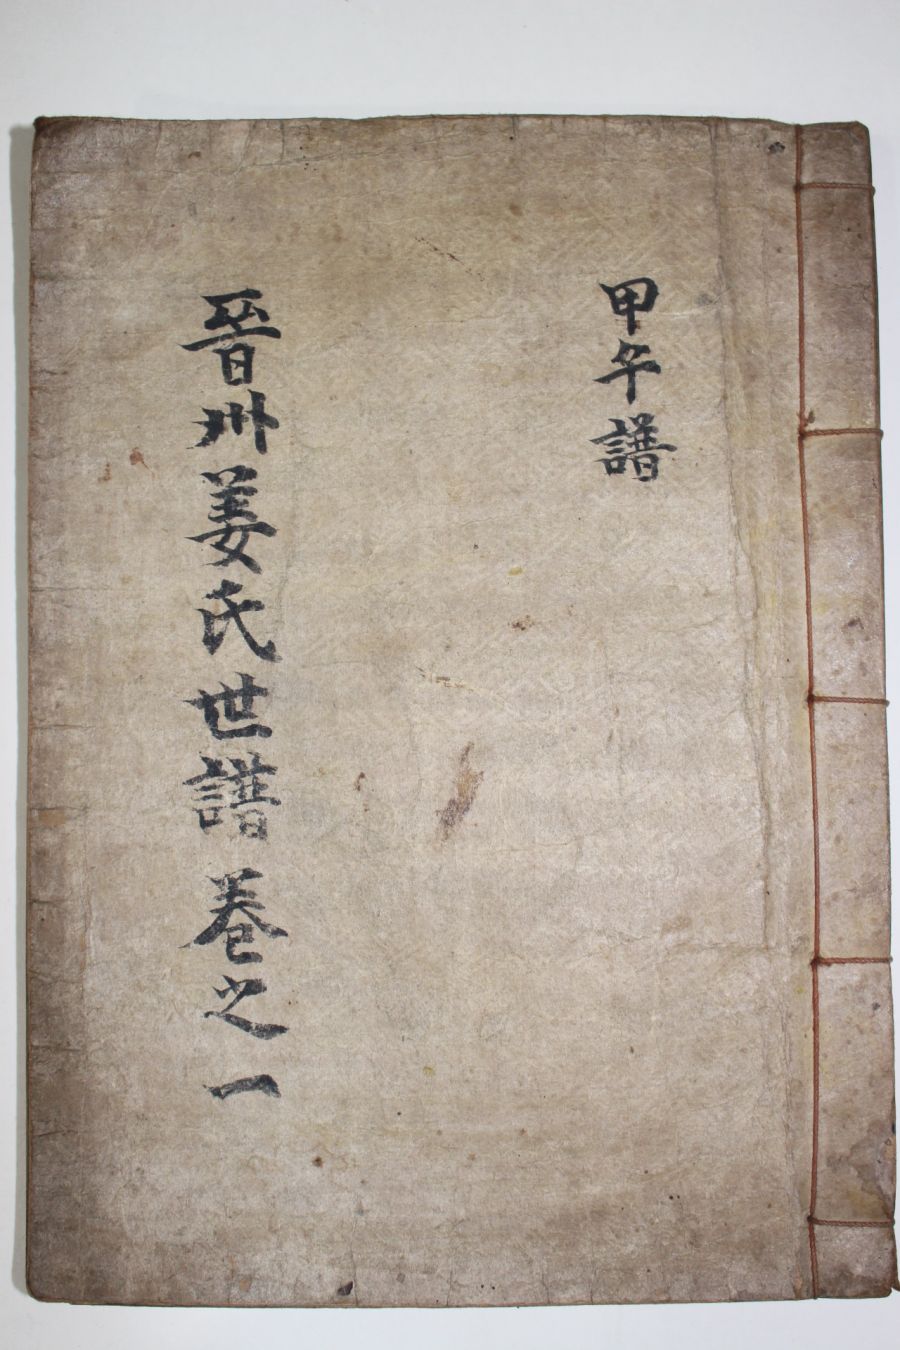 甲午譜
晉州姜氏世譜 卷之一